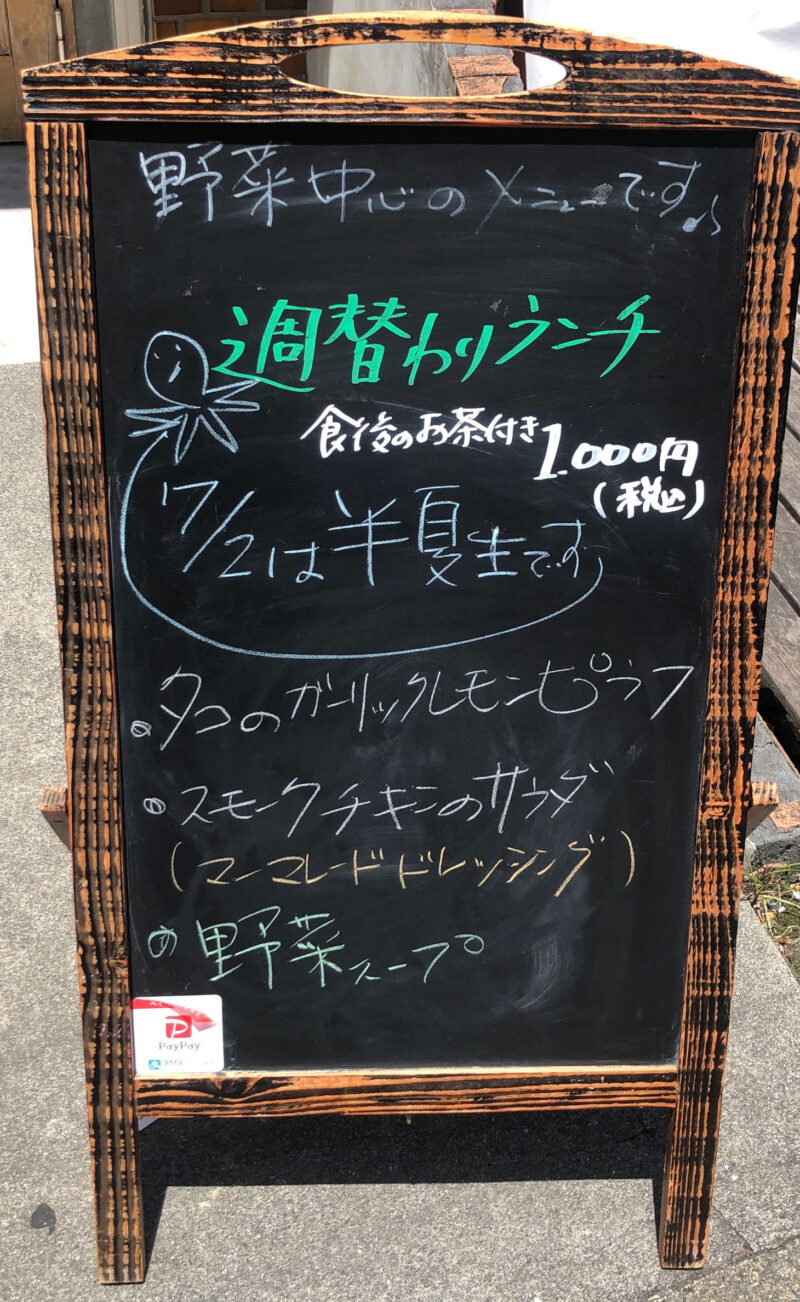 野菜中心のメニューです♪
週替わりランチ
食後のお茶付き 1.000円
(税込)
7/2は半夏生です
・タコのガーリックレモンピラフ
・スモークチキンのサラダ
(マーマレードドレッシング)
・野菜スープ
PayPay